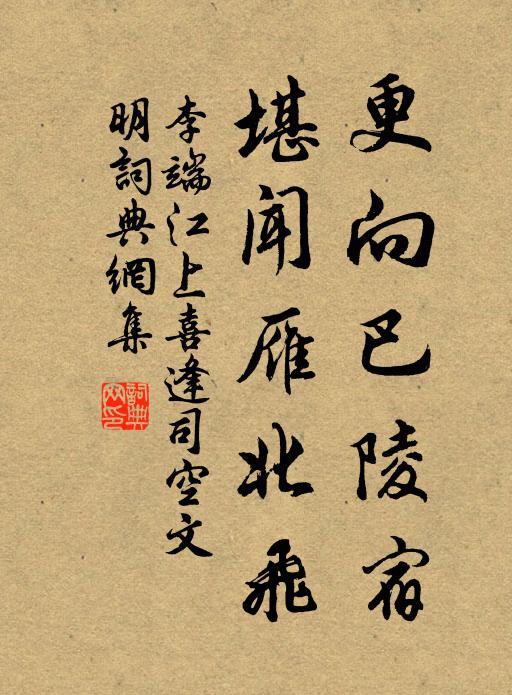 更向巴陵宿
堪聞雁北飛
李端江上喜逢司空文
明詞典網集
詞典網印